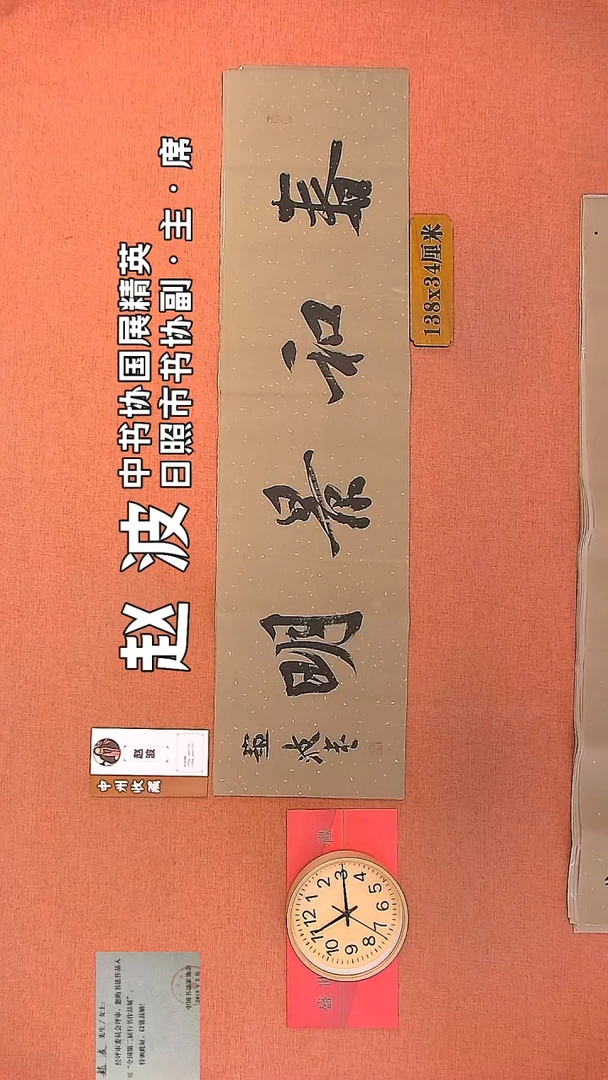 赵波
中书协国展精英
日照市书协副·主·席
春和景明
138x34厘米
赵波
中州收藏
12
1
2
3
4
5
6
7
8
9
10
11
赵 波 先生/女士:
经评审委员会评审,您的书法作品入
展“全国第二届行书作品展”,
特颁此证,以资鼓励!
中国书法家协会